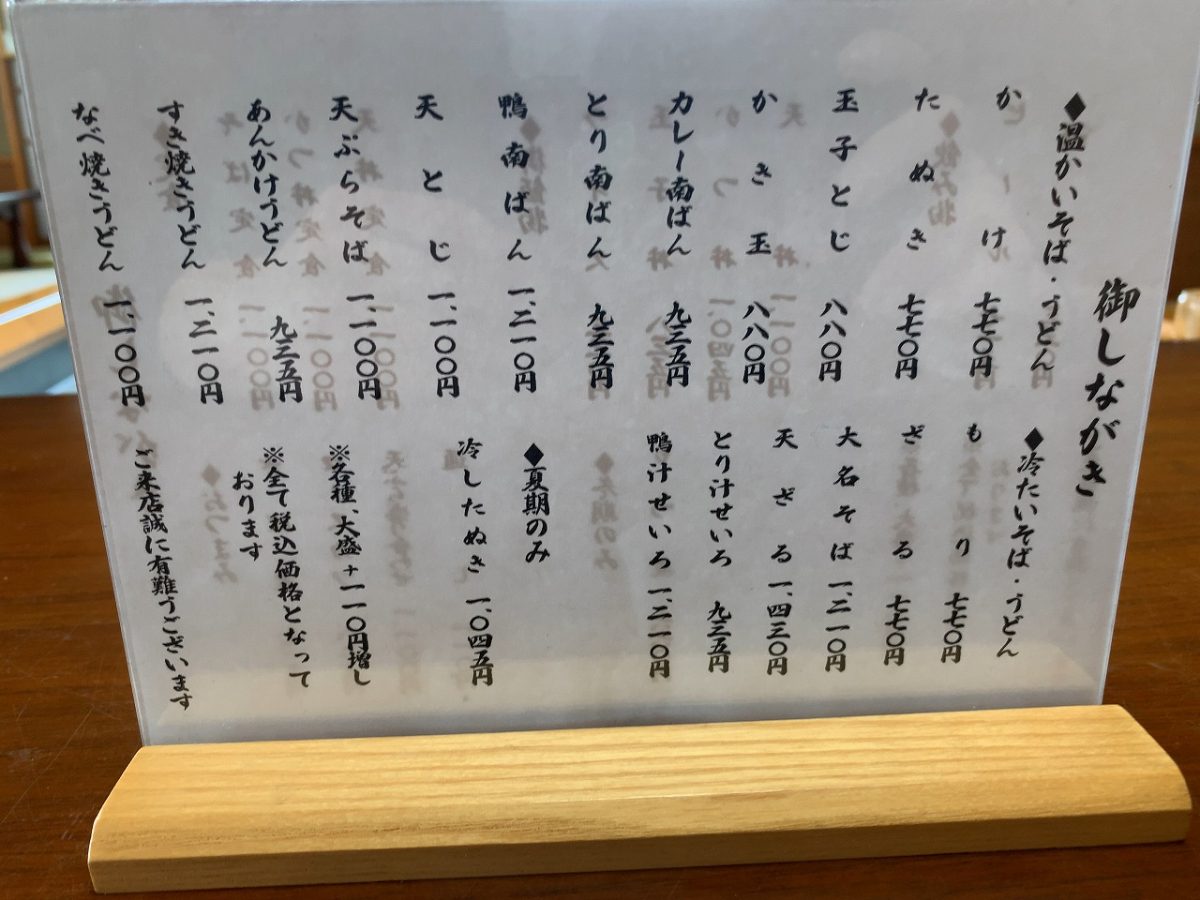 御しながき
◆温かいそば・うどん
かけ 七七〇円
たぬき 七七〇円
玉子とじ 八八〇円
かき玉 八八〇円
カレー南ばん 九三五円
とり南ばん 九三五円
鴨南ばん 一、二一〇円
天とじ 一、一〇〇円
天ぷらそば 一、一〇〇円
あんかけうどん 九三五円
すき焼きうどん 一、二一〇円
なべ焼きうどん 一、一〇〇円
◆冷たいそば・うどん
もり 七七〇円
ざる 七七〇円
大名そば 一、二一〇円
天ざる 一、四三〇円
とり汁せいろ 九三五円
鴨汁せいろ 一、二一〇円
◆夏期のみ
冷したぬき 一、〇四五円
※各種、大盛+一一〇円増し
※全て税込価格となって
おります
ご来店誠に有難うございます